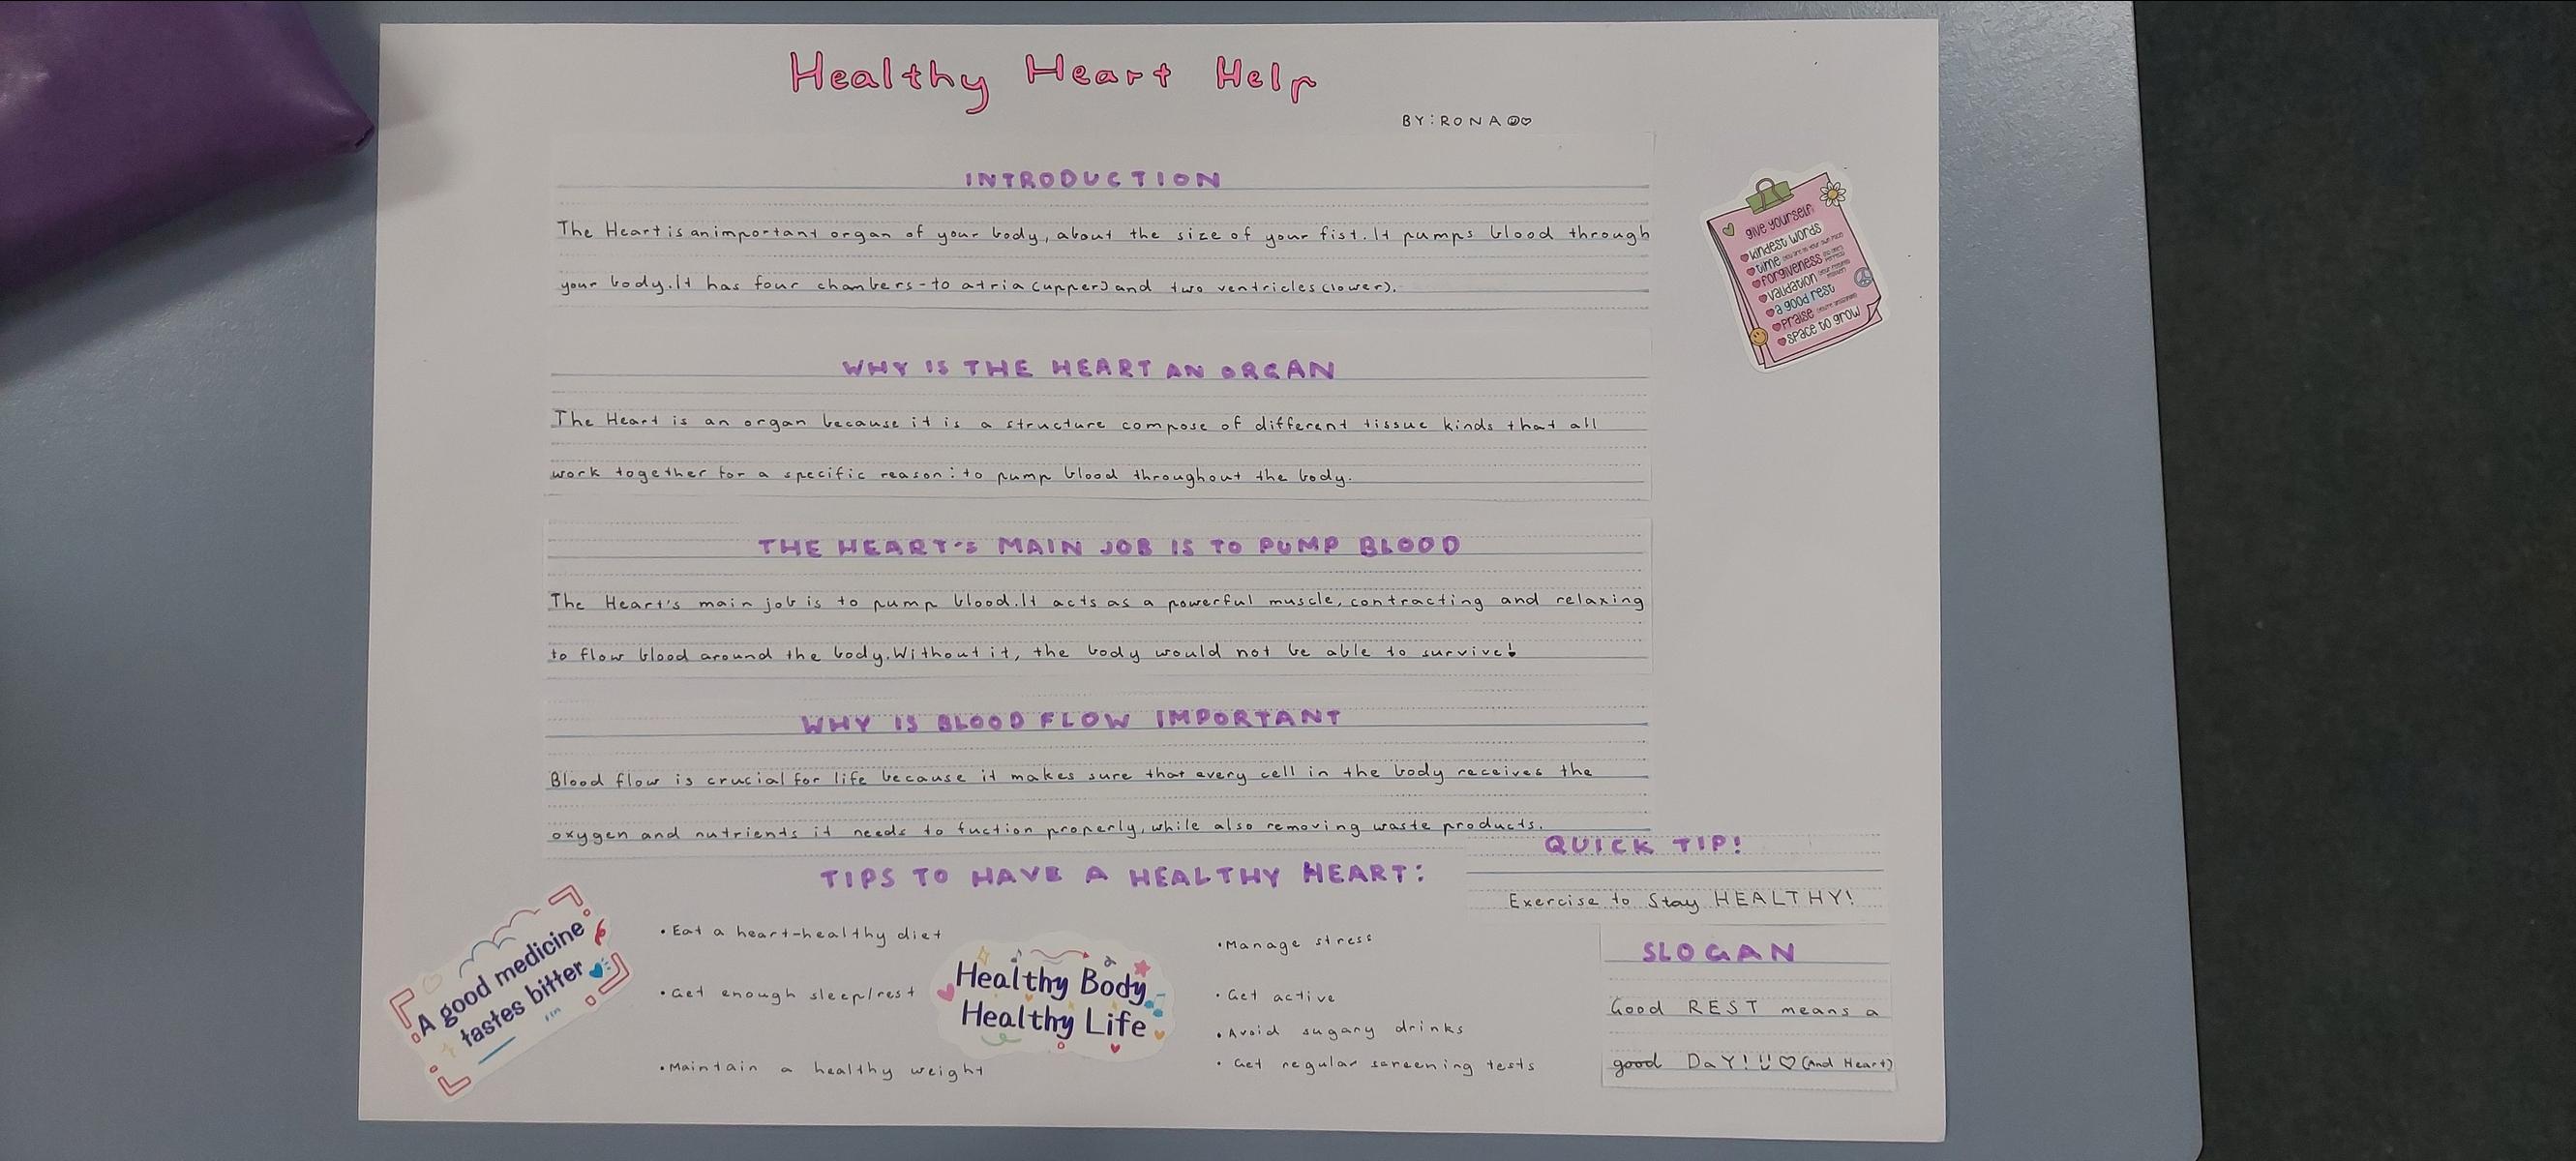 Healthy Heart Help
BY: RONA
INTRODUCTION
The Heart is an important organ of your body, about the size of your fist. It pumps blood through
your body. It has four chambers - to atria (upper) and two ventricles (lower).
give yourself:
kindest words
time
forgiveness
validation
a good rest
praise
space to grow
WHY IS THE HEART AN ORGAN
The Heart is an organ because it is a structure compose of different tissue kinds that all
work together for a specific reason: to pump blood throughout the body.
THE HEART'S MAIN JOB IS TO PUMP BLOOD
The Heart's main job is to pump blood. It acts as a powerful muscle, contracting and relaxing
to flow blood around the body. Without it, the body would not be able to survive!
WHY IS BLOOD FLOW IMPORTANT
Blood flow is crucial for life because it makes sure that every cell in the body receives the
oxygen and nutrients it needs to fuction properly, while also removing waste products.
TIPS TO HAVE A HEALTHY HEART:
• Eat a heart-healthy diet
• Get enough sleep/rest
• Maintain a healthy weight
• Manage stress
• Get active
• Avoid sugary drinks
• Get regular screening tests
A good medicine
tastes bitter
Healthy Body
Healthy Life
QUICK TIP!
Exercise to Stay HEALTHY!
SLOGAN
Good REST means a
good DaY! (And Heart)